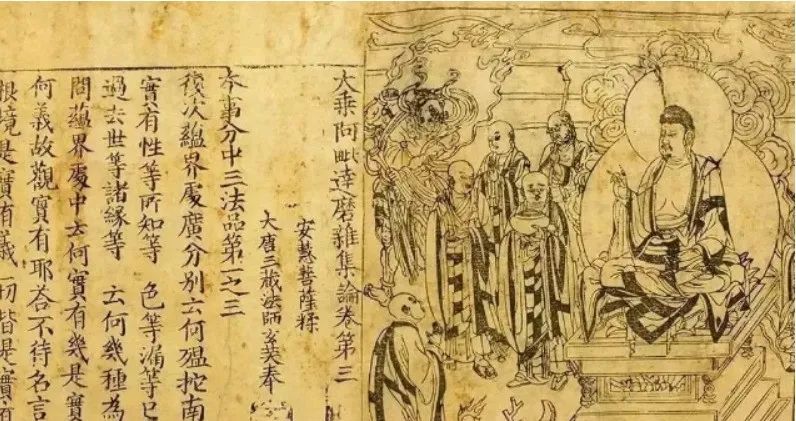 大乘阿毗達磨雜集論卷第三
安慧菩薩糅
大唐三藏法師玄奘奉
本事分中三法品第一之三
復次蘊界處廣分別云何殟拕南
實有性等所知等 色等漏等已
過去世等諸緣等 云何幾種為
問蘊界處中云何實有幾是實
何義故觀實有耶答不待名言
根境是實有義一切皆是實有